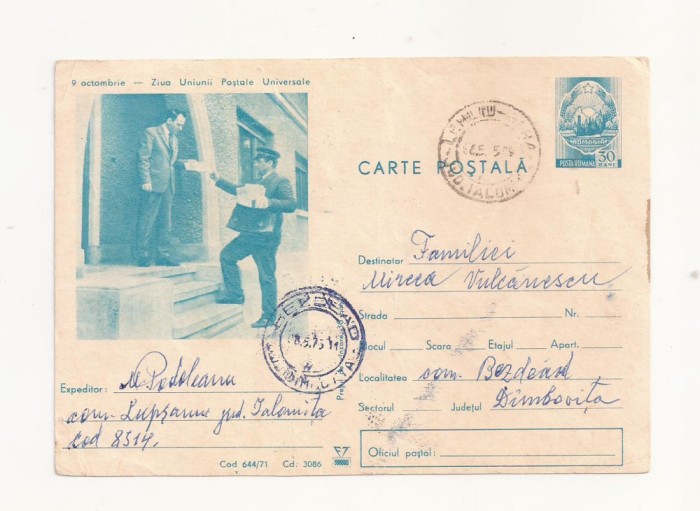 9 octombrie — Ziua Uniunii Poștale Universale
ROMANIA
POSTA ROMANA 30 BANI
CARTE POȘTALĂ
Destinator Familiei
Mircea Vulcănescu
Strada Nr.
Blocul Scara Etajul Apart.
Localitatea com. Bezdead
Sectorul Județul Dîmbovița
Oficiul poștal:
Expeditor: M Podoleanu
com. Lupșanu jud. Ialomița
Cod 8514.
Cod 644/71 Cd. 3086